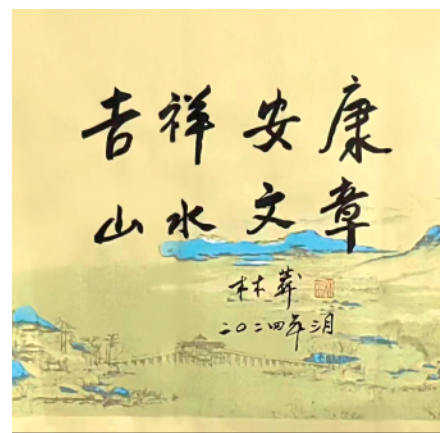 吉祥安康
山水文章
林莽
二〇二四年三月